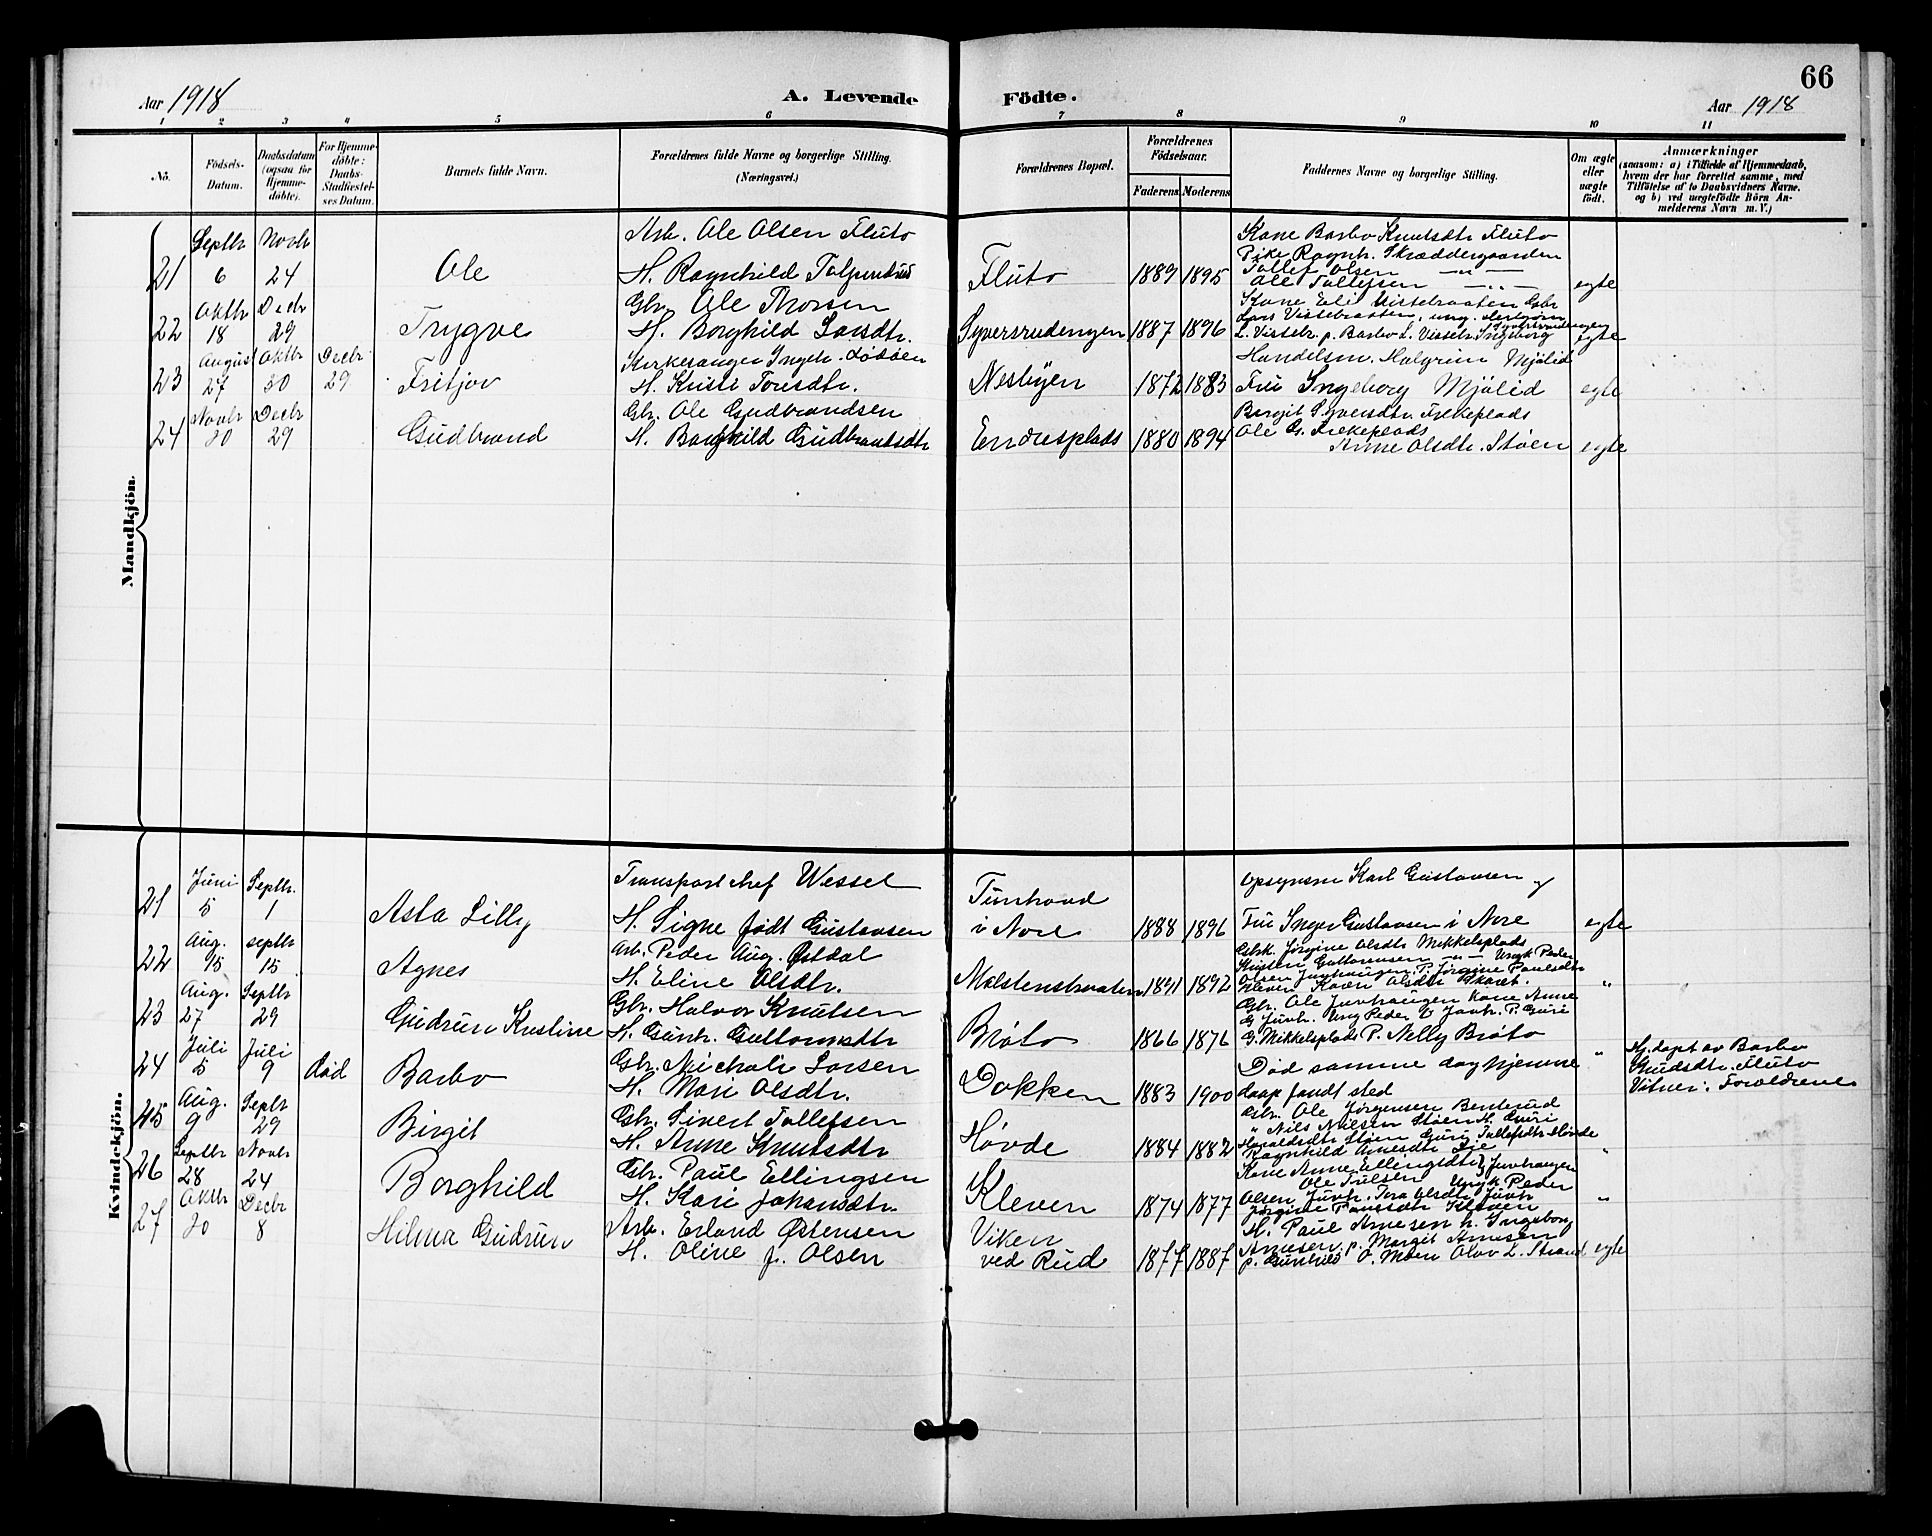 66
Aar 1918
A. Levende Födte.
Aar 1918
1 2 3 4 5 6 7 8 9 10 11
No.
Födsels-Datum.
Daabsdatum (ogsaa for Hjemme-döbte).
For Hjemme-döbte: Daabs-Stadfæstel-ses Datum.
Barnets fulde Navn.
Forældrenes fulde Navne og borgerlige Stilling.
(Næringsvei.)
Forældrenes Bopæl.
Forældrenes Födselsaar.
Faderens Moderens
Faddernes Navne og borgerlige Stilling.
Om ægte eller uægte födt.
Anmærkninger
(saasom: a) i Tilfælde af Hjemmedaab,
hvem der har forrettet samme, med
Tilföielse af to Daabsvidners Navne.
og b) ved uægtefödte Börn An-
melderens Navn m. V.)
Mandkjön.
21 Septbr 6 Novbr 24 Ole
Arb. Ole Olsen Fluto
H. Ragnhild
Fluto 1889 1895
Kone Barbo Knutsdtr Fluto
Pike Ragnh. Skræddergaarden
Tollef Olsen — " —
Ole Tollefsen — " —
egte
22 Oktbr 18 Decbr 29 Trygve
Gbr. Ole Thorsen
H. Borghild Larsdtr.
Syversrudengen 1887 1896
Kone Eli Vistebraaten Gbr
Lars Vistebraaten, ung.
L. Vistebr. p. Barbo L. Vistebr. Ingeborg
egte
23 August 27 Oktbr 30 Decbr 29 Fritjov
Kirkesanger Ingebr.
H. Kristi Toresdtr.
Nesbyen 1872 1883
Handelsm. Halgrim Mjölid
Fru Ingeborg Mjölid
egte
24 Novbr 20 Decbr 29 Gudbrand
Gbr. Ole Gudbrandsen
H. Borghild Gudbrandsdtr
1880 1894
Birgit Syversdtr.
Ole G.
Anne Olsdtr. Støen
egte
Kvindekjön.
21 Juni 5 Septbr. 1 Asta Lilly
Transportchef Wessel
H. Signe født Gustavsen
Tunhovd
i Nore 1888 1896
Opsynsm Karl Gustavsen og
Fru Inger Gustavsen i Nore
egte
22 Aug. 15 Septbr 15 Agnes
Arb. Peder Aug. Østdal
H. Eline Olsdtr.
1891 1892
Gbrk. Jørgine Olsdtr Mikkelsplads
Kristen Guttormsen — " — Ungk Peder
Olsen Juvhaugen. P. Jørgine Paulsdtr
Kleven Karen Olsdtr
"
23 Aug. 27 Septbr 29 Gudrun Kristine
Gbr. Halvor Knutsen
H. Gunh. Guttormsdtr
Bråto 1866 1876
Gbr. Ole Juvhaugen Kone Anne
G Juvh. Ung Peder O Juvh. P. Guri
G. Mikkelsplads P. Nelly Bråto
24 Juli 5 Juli 9 død Barbo
Gbr. Michael Larsen
H. Mari Olsdtr.
Dokken 1883 1900
Død samme dag hjemme
daap fandt sted
"
Hj. døpt av Barbo
Gundsdtr. Fluto
Vitner: Forældrene
25 Aug. 9 Septbr 29 Birgit
Gbr. Sivert Tollefsen
H. Anne Knutsdtr
Høvde 1884 1882
Gbr. Ole Jørgensen Benterud
" Nils Nilsen Støen H. Guri
Haraldsdtr Støen Guri Tollefsdtr Høvde
Ragnhild Arnesdtr
"
26 Septbr 28 Novbr 24 Borghild
Gbr. Paul Ellingsen
H. Kari Johansdtr
Kleven 1874 1877
Kone Anne Ellingsdtr Juvhaugen
Ole Ungk Peder
Olsen Juvh. Tora Olsdtr Juvh
Jørgine Paulsdtr Kleven
"
27 Oktbr 20 Decbr 8 Hilma Gudrun
Arb. Erland Østensen
H. Oline f. Olsen
Viken
ved Rud 1877 1887
H. Paul Arnesen h. Ingeborg
Arnesen. p. Margit Arnesen
p. Gunhild O. Moen Olav L. Strand
egte